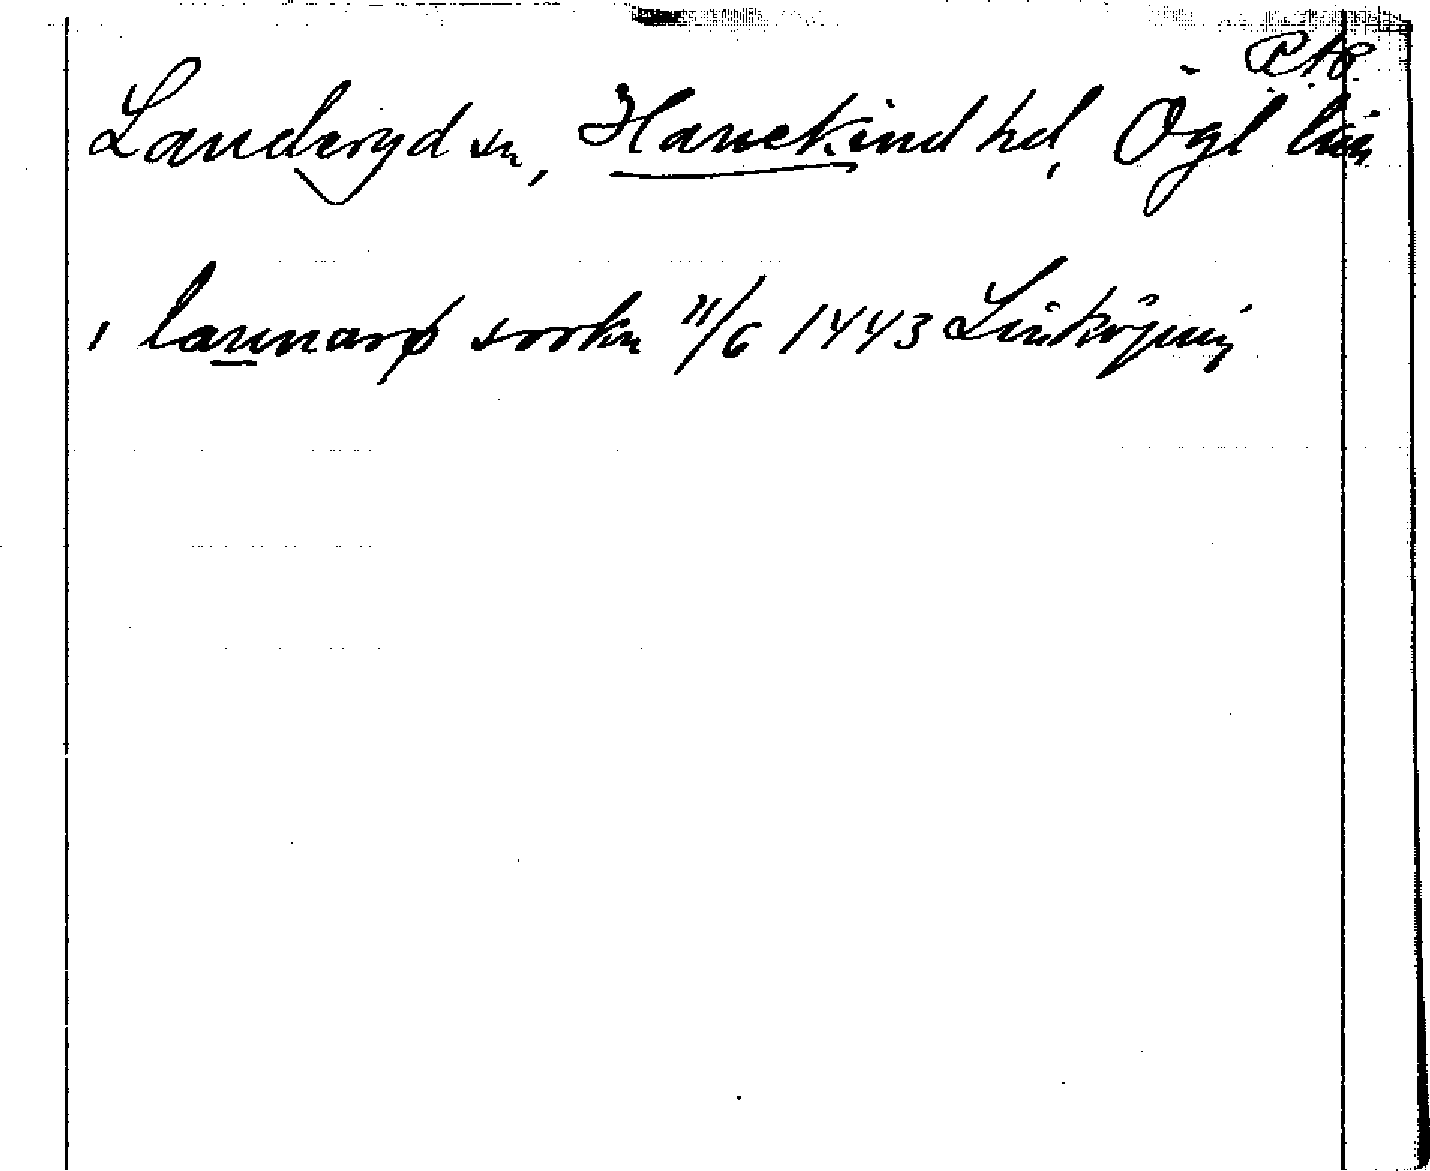 Landeryd sn, Hanekind hd, Ögl län
i lannarø sookn 11/6 1443 Linköping